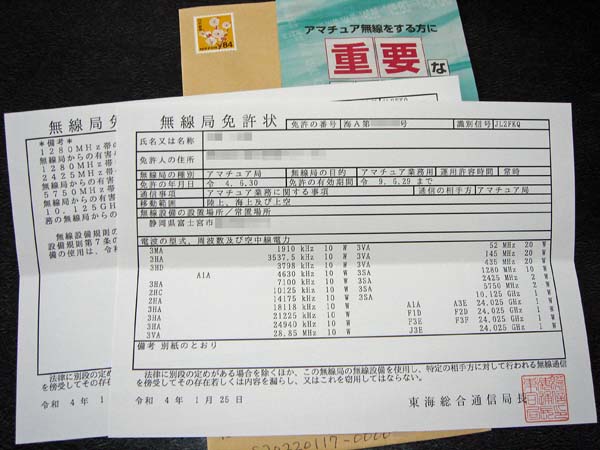 アマチュア無線をする方に
重要な
¥84
無線局免許
*備考*
1280MHz帯の
無線局からの有害
1280MHz帯
2425MHz帯
無線局からの有害
5750MHz帯
無線局からの有害
10.125GH
務の無線局から
無線設備規則の
設備規則第7条の
備の使用は、令和
令和 4年 1
無線局免許状
免許の番号 海A第 識別信号 JL2FKQ
氏名又は名称
免許人の住所
無線局の種別 アマチュア局 無線局の目的 アマチュア業務用 運用許容時間 常時
免許の年月日 令 4.5.30 免許の有効期間 令 9.5.29 まで
通信事項 アマチュア業務に関する事項 通信の相手方 アマチュア局
移動範囲 陸上、海上及び上空
無線設備の設置場所/常置場所
静岡県富士宮市
電波の型式、周波数及び空中線電力
3MA 1910 kHz 10 W 3VA 52 MHz 20 W
3HA 3537.5 kHz 10 W 3VA 145 MHz 20 W
3HD 3798 kHz 10 W 3VA 435 MHz 20 W
A1A 4630 kHz 10 W 3SA 1280 MHz 10 W
3HA 7100 kHz 10 W 3SA 2425 MHz 2 W
2HC 10125 kHz 10 W 3SA 5750 MHz 2 W
2HA 14175 kHz 10 W 3SA 10.125 GHz 1 W
3HA 18118 kHz 10 W A1A A3E 24.025 GHz 1 W
3HA 21225 kHz 10 W F1D F2D 24.025 GHz 1 W
3HA 24940 kHz 10 W F3E F3F 24.025 GHz 1 W
3VA 28.85 MHz 10 W J3E 24.025 GHz 1 W
備考 別紙のとおり
法律に別段の定めがある場合を除くほか、この無線局の無線設備を使用し、特定の相手方に対して行われる無線通信
を傍受してその存在若しくは内容を漏らし、又はこれを窃用してはならない。
令和 4年 1月25日
東海総合通信局長
法律に別段の定め
を傍受してその存